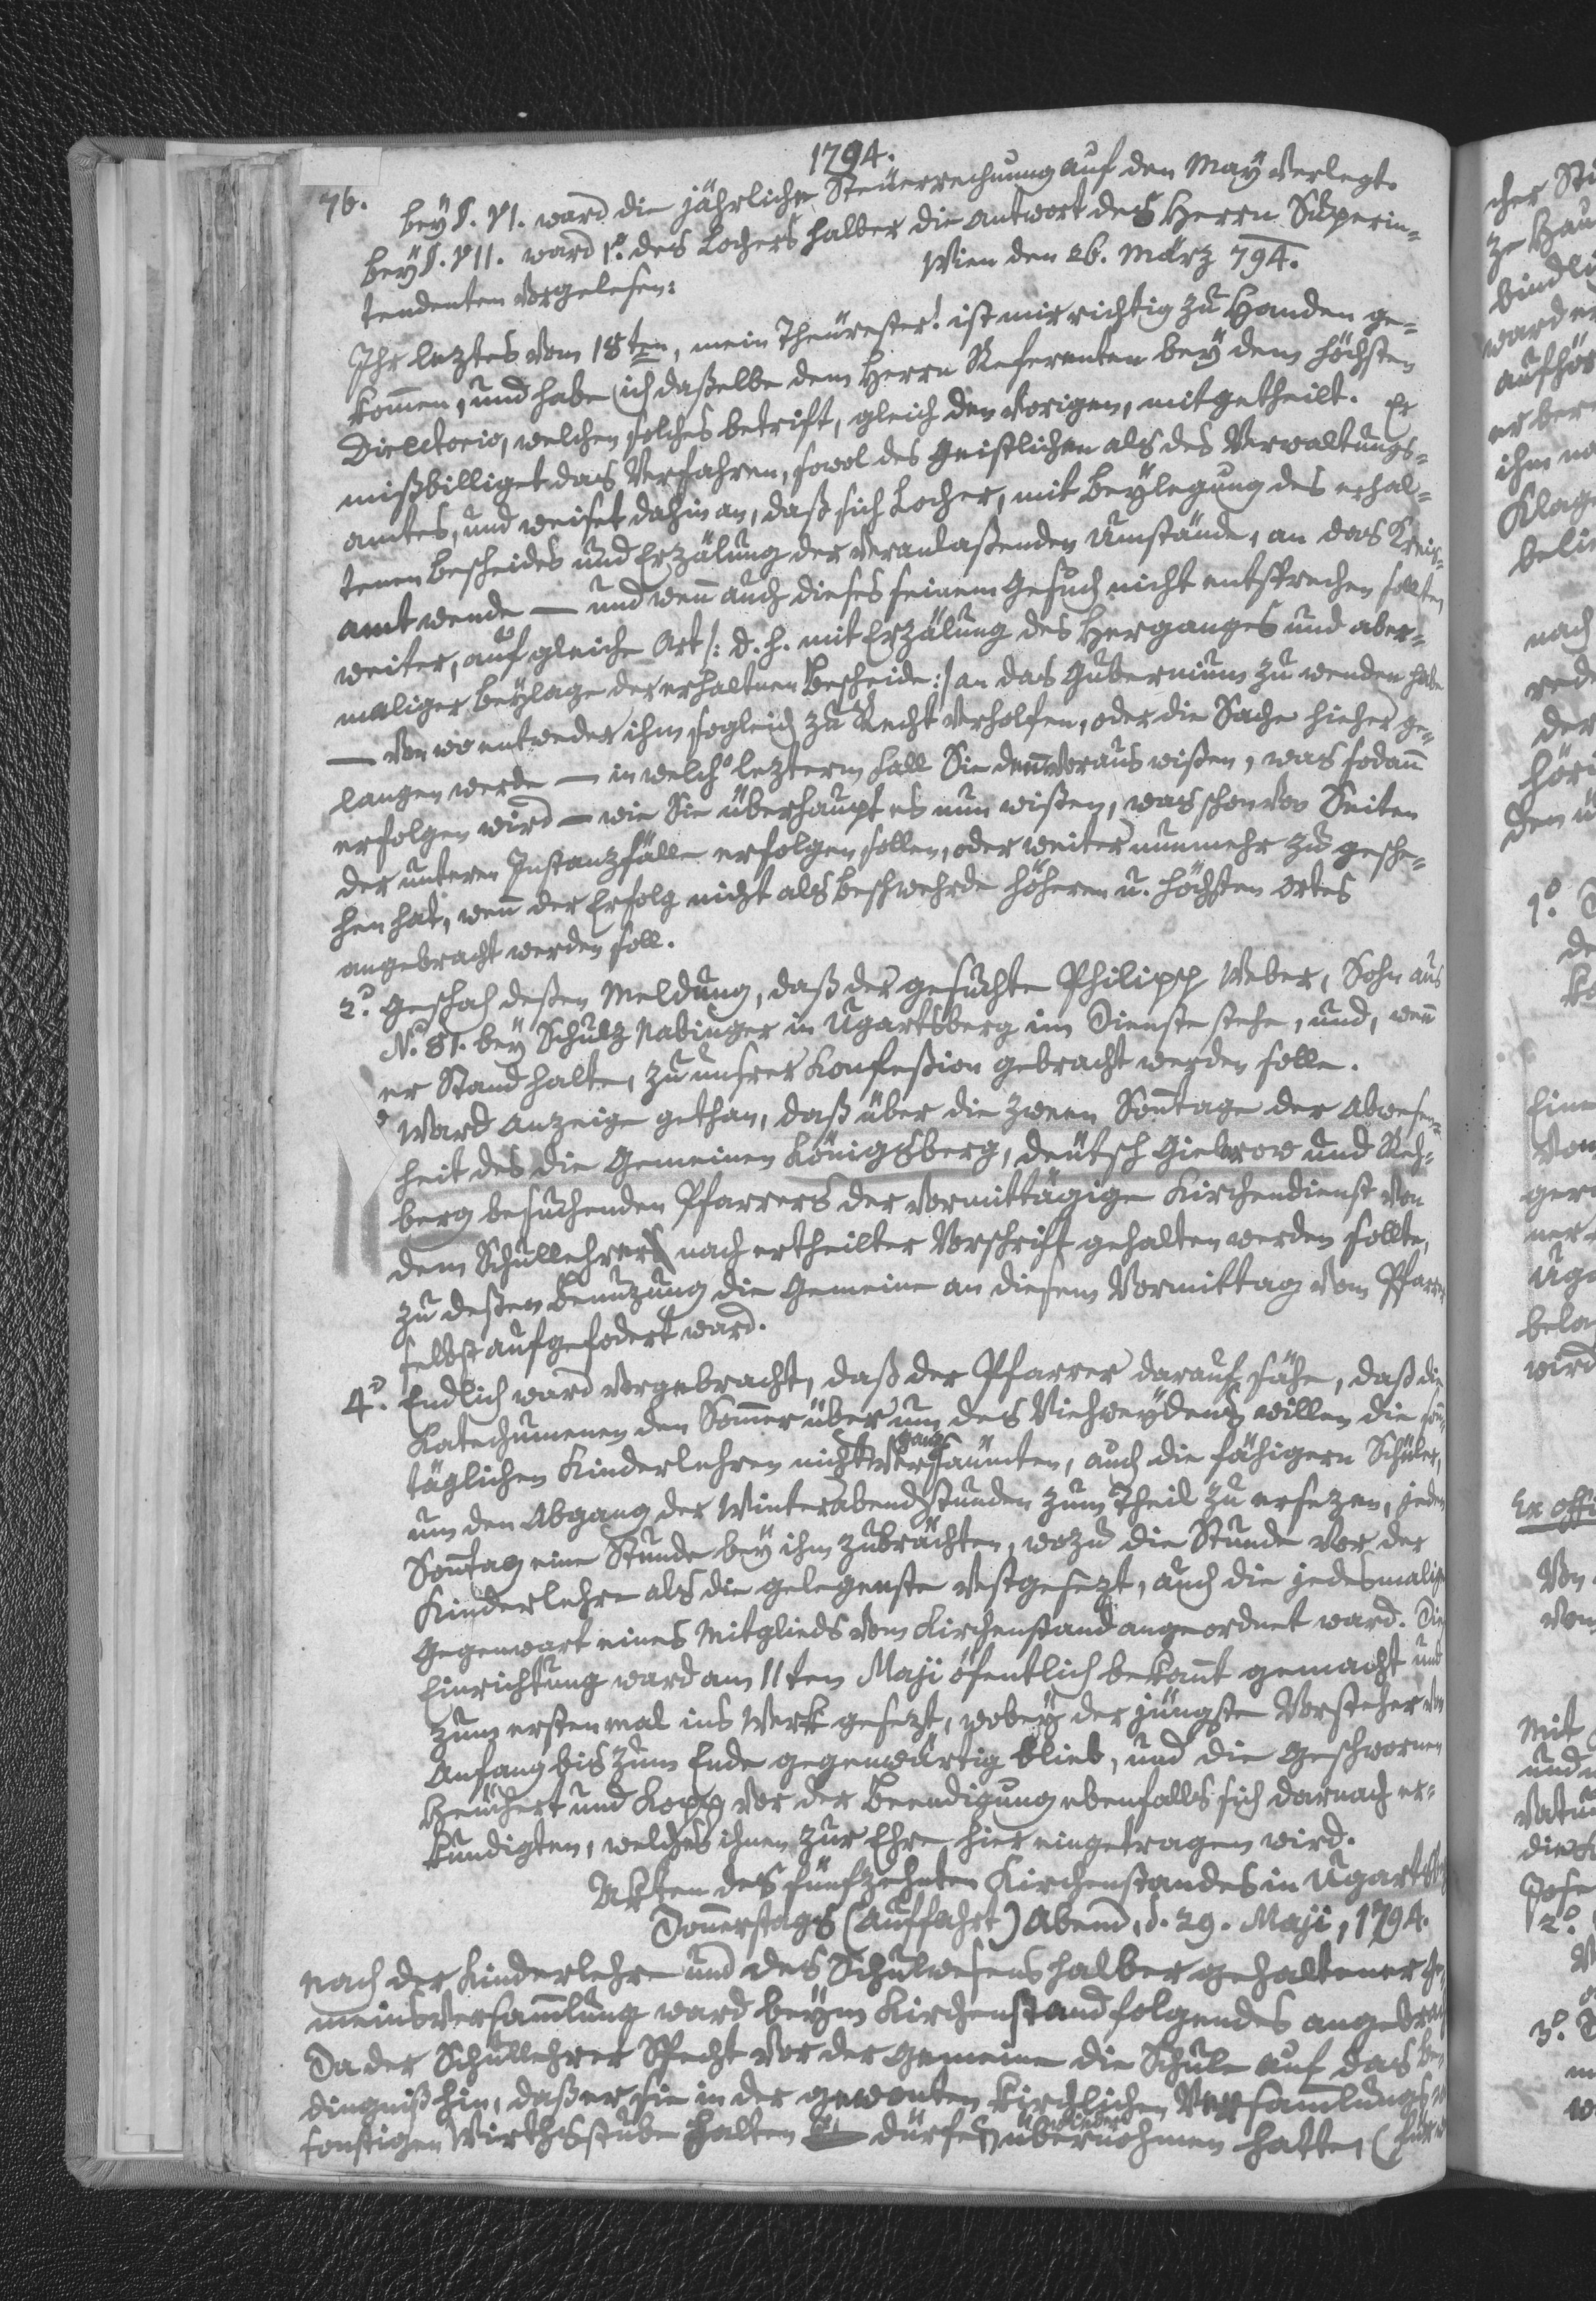 1794.
76. bey §. VI. ward die jährliche Steuerrechnung auf den May verlegt.
bey §. VII. ward 1º. des Lochers halber die Antwort des Herrn Superin-
tendenten vorgelesen:
Wien den 26. März 794.
Ihr leztes vom 18ten, mein Theurester! ist mir richtig zu Handen ge-
kommen, und habe ich daßelbe dem Herrn Referenten bey dem höchsten
Directorio, welchen solches betrift, gleich den vorigen, mitgetheilt. Er
mißbilliget das Verfahren, sowol des Geistlichen als des Verwaltungs-
amtes, und weiset dahin an, daß sich Locher, mit Beylegung des erhal-
tenen Bescheides und Erzälung der veranlaßenden Umstände, an das Kreis-
amt wende — und wenn auch dieses seinem Gesuch nicht entsprechen sollte,
weiter, auf gleiche Art /: d. h. mit Erzälung des Herganges und aber-
maliger Beylage der erhaltnen Bescheide :/ an das Gubernium zu wenden habe
— von wo entweder ihm sogleich zu Recht verholfen, oder die Sache hieher ge-
langen werde — in welch lezterm Fall Sie denn voraus wißen, was sodann
erfolgen wird — wie Sie überhaupt es nun wißen, was schon von Seiten
der untern Instanzfälle erfolgen sollen, oder weiter nunmehr zu gesche-
hen hat, wenn der Erfolg nicht als Beschwehrde höheren u. höchsten Ortes
angebracht werden soll.
2º. Geschah deßen Meldung, daß der gesuchte Philipp Weber, Sohn aus
N. 81. bey Schulz Nabinger in Ugartsberg im Dienste stehe, und, wenn
er Stand halte, zu unsrer Konfeßion gebracht werden solle.
Ward Anzeige gethan, daß über die zween Sontage der Abwesen-
heit des die Gemeinen Königsberg, deutsch Gielerow und Reh-
berg besuchenden Pfarrers der vormittägige Kirchendienst von
dem Schullehrer nach ertheilter Vorschrift gehalten werden sollte,
zu deßen Benuzung die Gemeine an diesem Vormittag vom Pfarrer
selbst aufgefodert ward.
4º. Endlich ward vorgebracht, daß der Pfarrer darauf sähe, daß die
Katechumenen den Sommer über um des Viehweydens willen die son-
täglichen Kinderlehren nicht ganz versäumten, auch die fähigern Schüler,
um den Abgang der Winterabendstunden zum Theil zu ersezen, jeden
Sontag eine Stunde bey ihm zubrächten, wozu die Stunde vor der
Kinderlehre als die gelegenste vestgesezt, auch die jedesmalige
Gegenwart eines Mitglieds vom Kirchenstand angeordnet ward. Diese
Einrichtung ward am 11ten Maji öfentlich bekannt gemacht und
zum erstenmal ins Werk gesezt, wobey der jüngste Vorsteher von
Anfang bis zum Ende gegenwärtig blieb, und die Geschwornen
Heuchert und Kopp vor der Beendigung ebenfalls sich darnach er-
kundigten, welches ihnen zur Ehre hier eingetragen wird.
Akten des fünfzehnten Kirchenstandes in Ugartsberg
Donnerstags (Auffahrt) Abend, d. 29. Maji, 1794.
Nach der Kinderlehre und des Schulwesens halber gehaltener Ge-
meinsversamlung ward beym Kirchenstand folgendes angebracht
Da der Schullehrer Specht vor der Gemeine die Schule auf das Be-
dingniß hin, daß er sie in der gewonten kirchlichen Versamlungs-
sonstigen Wirthsstube halten dürfe, übernohmen hatte, (für